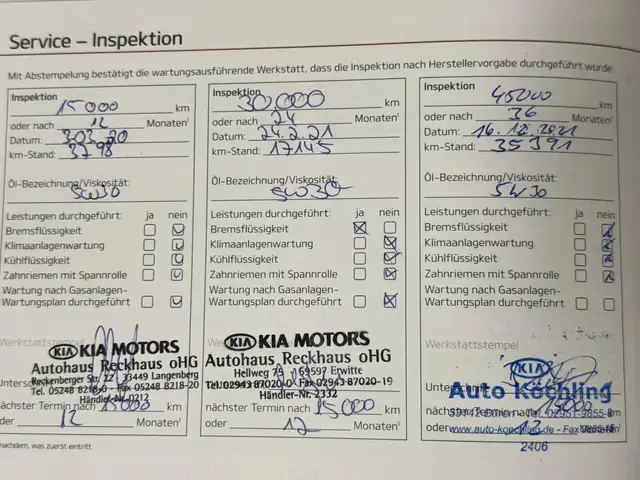 Service – Inspektion
Mit Abstempelung bestätigt die wartungsausführende Werkstatt, dass die Inspektion nach Herstellervorgabe durchgeführt wurde
Inspektion
15000 km
oder nach 12 Monaten¹
Datum: 3.03.20
km-Stand: 3798
Öl-Bezeichnung/Viskosität:
5W30
Leistungen durchgeführt: ja nein
Bremsflüssigkeit
Klimaanlagenwartung
Kühlflüssigkeit
Zahnriemen mit Spannrolle
Wartung nach Gasanlagen-
Wartungsplan durchgeführt
Werkstattstempel
KIA KIA MOTORS
Autohaus Reckhaus oHG
Reckenberger Str. 33449 Langenberg
Tel. 05248 8218-0 Fax 05248 8218-20
Händler-Nr. 0212
nächster Termin nach 15000
oder 12 Monaten¹
Inspektion
30.000 km
oder nach 24 Monaten¹
Datum: 24.2.21
km-Stand: 17145
Öl-Bezeichnung/Viskosität:
5W30
Leistungen durchgeführt: ja nein
Bremsflüssigkeit
Klimaanlagenwartung
Kühlflüssigkeit
Zahnriemen mit Spannrolle
Wartung nach Gasanlagen-
Wartungsplan durchgeführt
KIA KIA MOTORS
Autohaus Reckhaus oHG
Hellweg 59597 Erwitte
Tel. 02943 87020-0 Fax 02943 87020-19
Händler-Nr. 2332
nächster Termin nach 15000
oder 12 Monaten¹
Inspektion
45000 km
oder nach 36 Monaten¹
Datum: 16.12.2021
km-Stand: 35391
Öl-Bezeichnung/Viskosität:
5W30
Leistungen durchgeführt: ja nein
Bremsflüssigkeit
Klimaanlagenwartung
Kühlflüssigkeit
Zahnriemen mit Spannrolle
Wartung nach Gasanlagen-
Wartungsplan durchgeführt
Werkstattstempel
KIA
Auto Köchling
nächster Termin nach 15000
oder 12
www.auto-koechling.de
2406
nachdem, was zuerst eintritt.